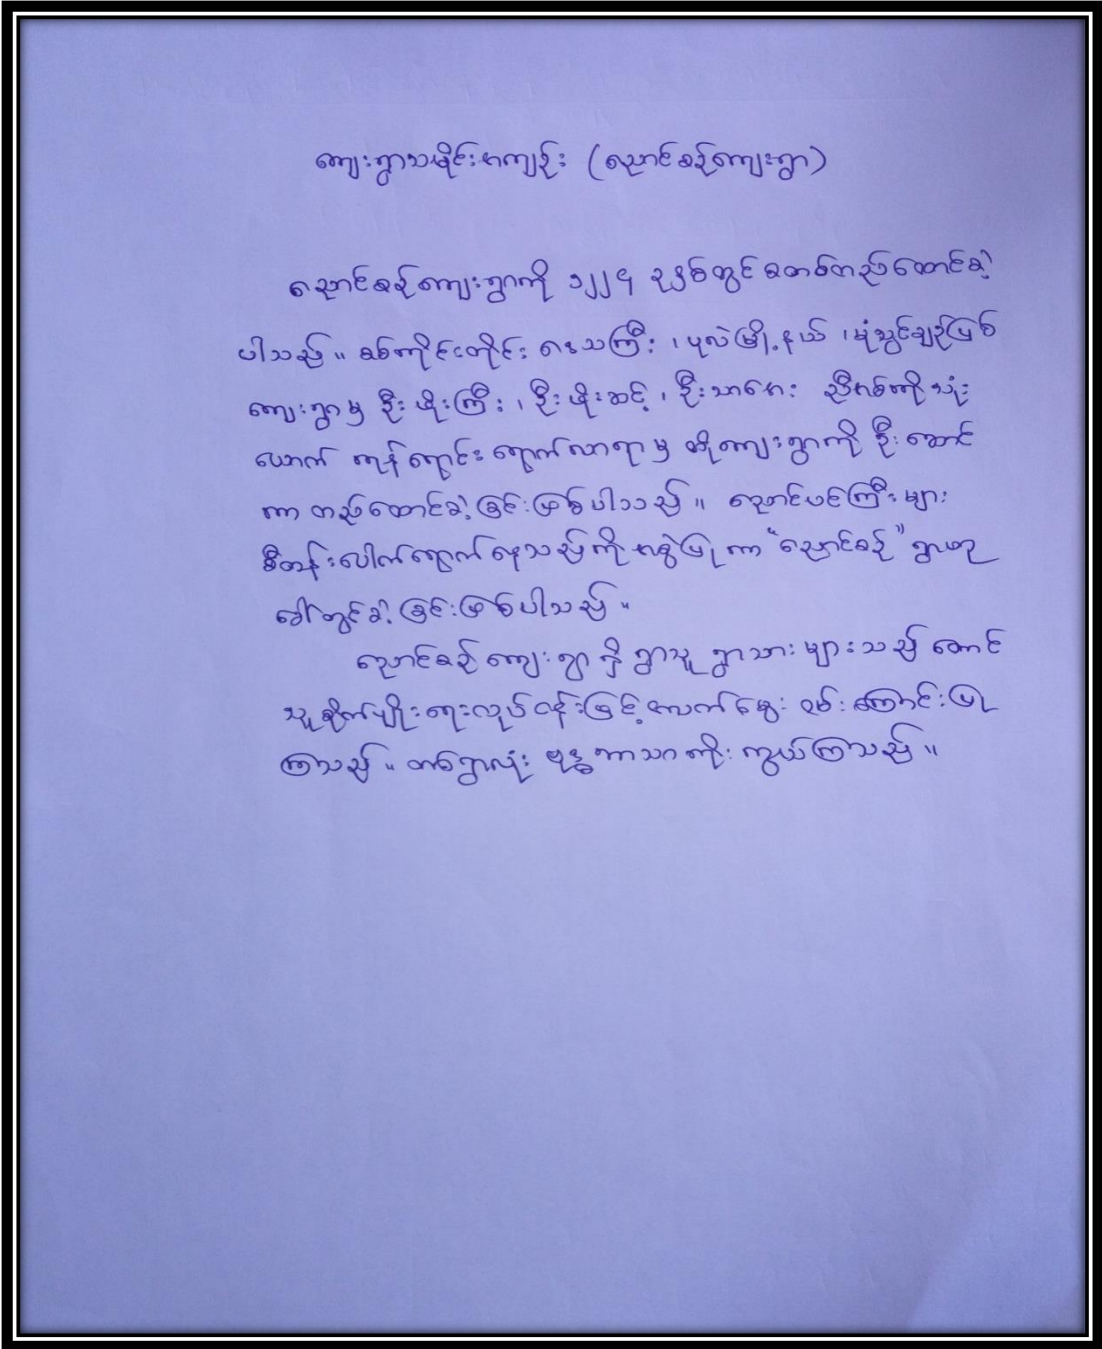 ကျေးရွာသမိုင်းအကျဉ်း (ညောင်စဉ်ကျေးရွာ)
ညောင်စဉ်ကျေးရွာကို ၁၂၂၄ ခုနှစ်တွင် စတင်တည်ထောင်ခဲ့
ပါသည်။ စစ်ကိုင်းတိုင်းဒေသကြီး ၊ ပုလဲမြို့နယ် ၊
ကျေးရွာမှ ဦးဖိုးကြီး ၊ ဦးဖိုးဆင့် ၊ ဦးသာဒေး ညီအစ်ကိုသုံး
ယောက် ကုန်ရောင်းရောက်လာရာမှ ဤကျေးရွာကို ဦးဆောင်
ကာ တည်ထောင်ခဲ့ခြင်းဖြစ်ပါသည်။ ညောင်ပင်ကြီးများ
စီတန်းပေါက်ရောက်နေသည်ကို အစွဲပြုကာ "ညောင်စဉ်" ရွာဟု
ခေါ်တွင်ခဲ့ခြင်းဖြစ်ပါသည်။
ညောင်စဉ်ကျေးရွာရှိ ရွာသူရွာသားများသည် တောင်
သူစိုက်ပျိုးရေးလုပ်ငန်းဖြင့် အသက်မွေးဝမ်းကြောင်းပြု
ကြသည်။ တစ်ရွာလုံး ဗုဒ္ဓဘာသာကိုးကွယ်ကြသည်။